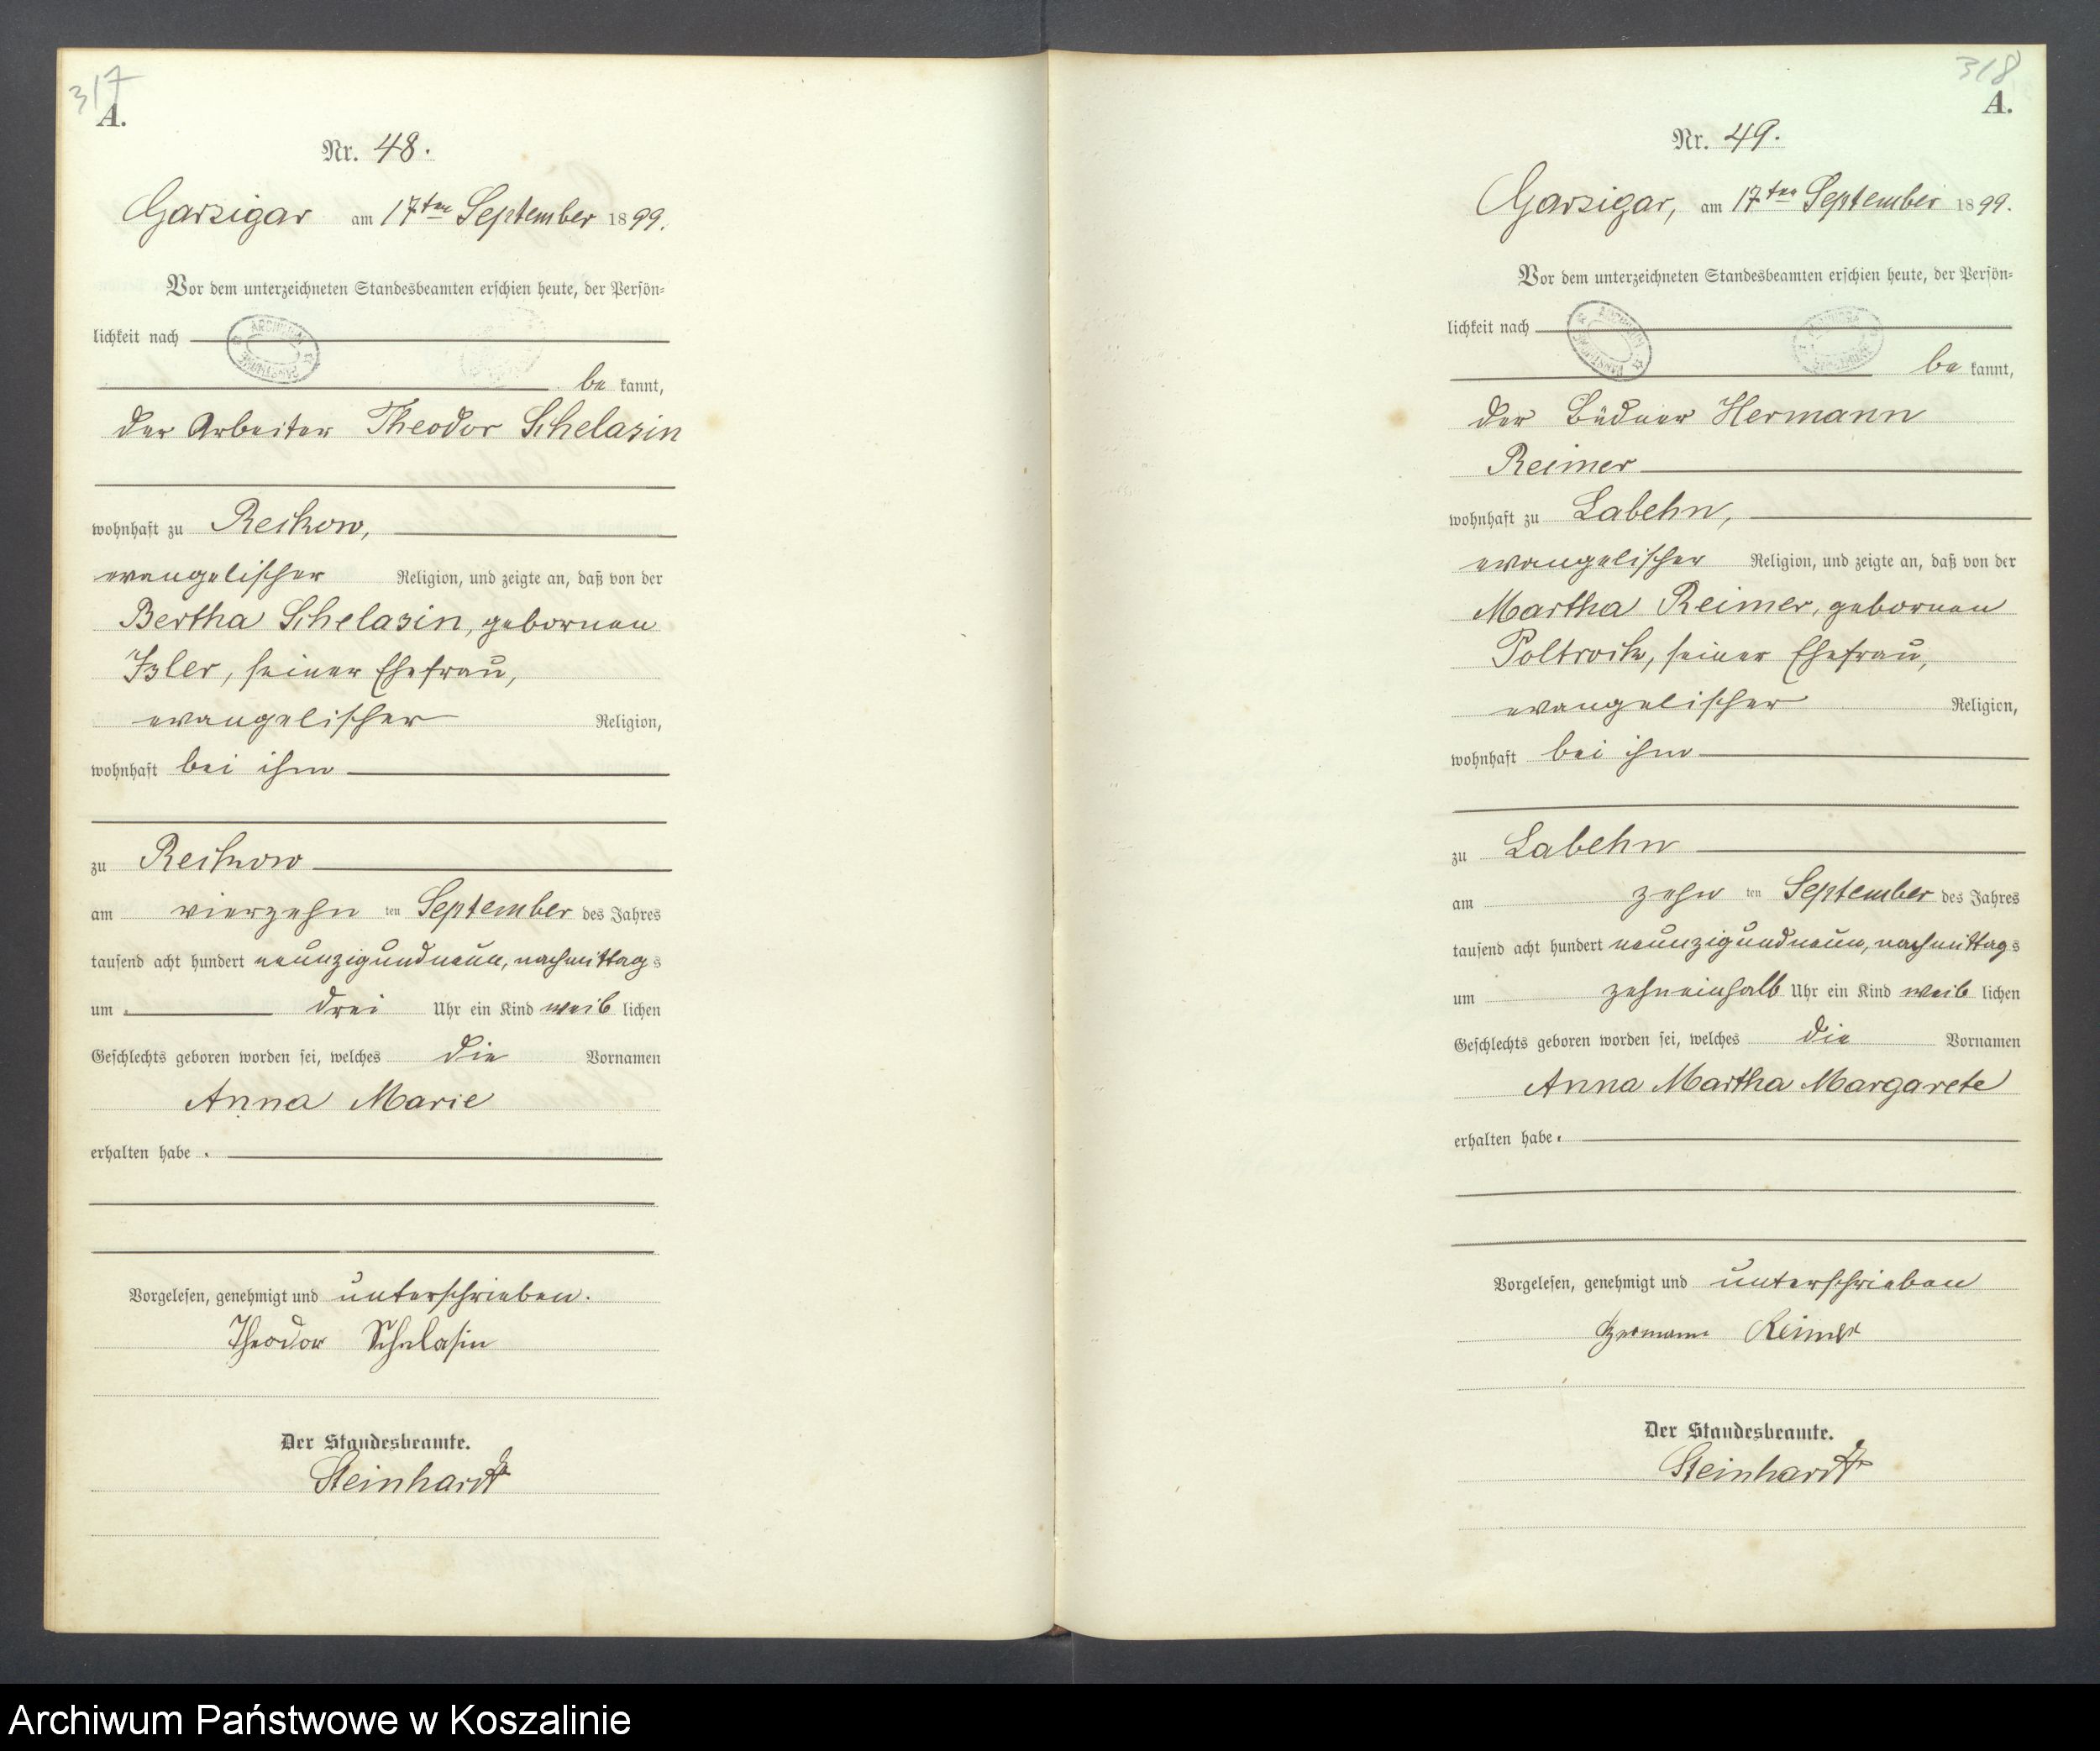 317
A.
Nr. 48.
Garzigar am 17ten September 1899.
Vor dem unterzeichneten Standesbeamten erschien heute, der Persön-
lichkeit nach
be kannt,
der Arbeiter Theodor Schelasin
wohnhaft zu Reckow,
evangelischer Religion, und zeigte an, daß von der
Bertha Schelasin, gebornen
seiner Ehefrau,
evangelischer Religion,
wohnhaft bei ihm
zu Reckow
am vierzehn ten September des Jahres
tausend acht hundert neunzigundneun, nachmittags
um drei Uhr ein Kind weib lichen
Geschlechts geboren worden sei, welches die Vornamen
Anna Marie
erhalten habe.
Vorgelesen, genehmigt und unterschrieben.
Theodor Schelasin
Der Standesbeamte.
Steinhardt
318
A.
Nr. 49.
Garzigar, am 17ten September 1899.
Vor dem unterzeichneten Standesbeamten erschien heute, der Persön-
lichkeit nach
be kannt,
der Büdner Hermann
Reimer
wohnhaft zu Labehn,
evangelischer Religion, und zeigte an, daß von der
Martha Reimer, gebornen
Poltrock, seiner Ehefrau,
evangelischer Religion,
wohnhaft bei ihm
zu Labehn
am zehn ten September des Jahres
tausend acht hundert neunzigundneun, nachmittags
um zehneinhalb Uhr ein Kind weib lichen
Geschlechts geboren worden sei, welches die Vornamen
Anna Martha Margarete
erhalten habe.
Vorgelesen, genehmigt und unterschrieben
Hermann Reimer
Der Standesbeamte.
Steinhardt
Archiwum Państwowe w Koszalinie